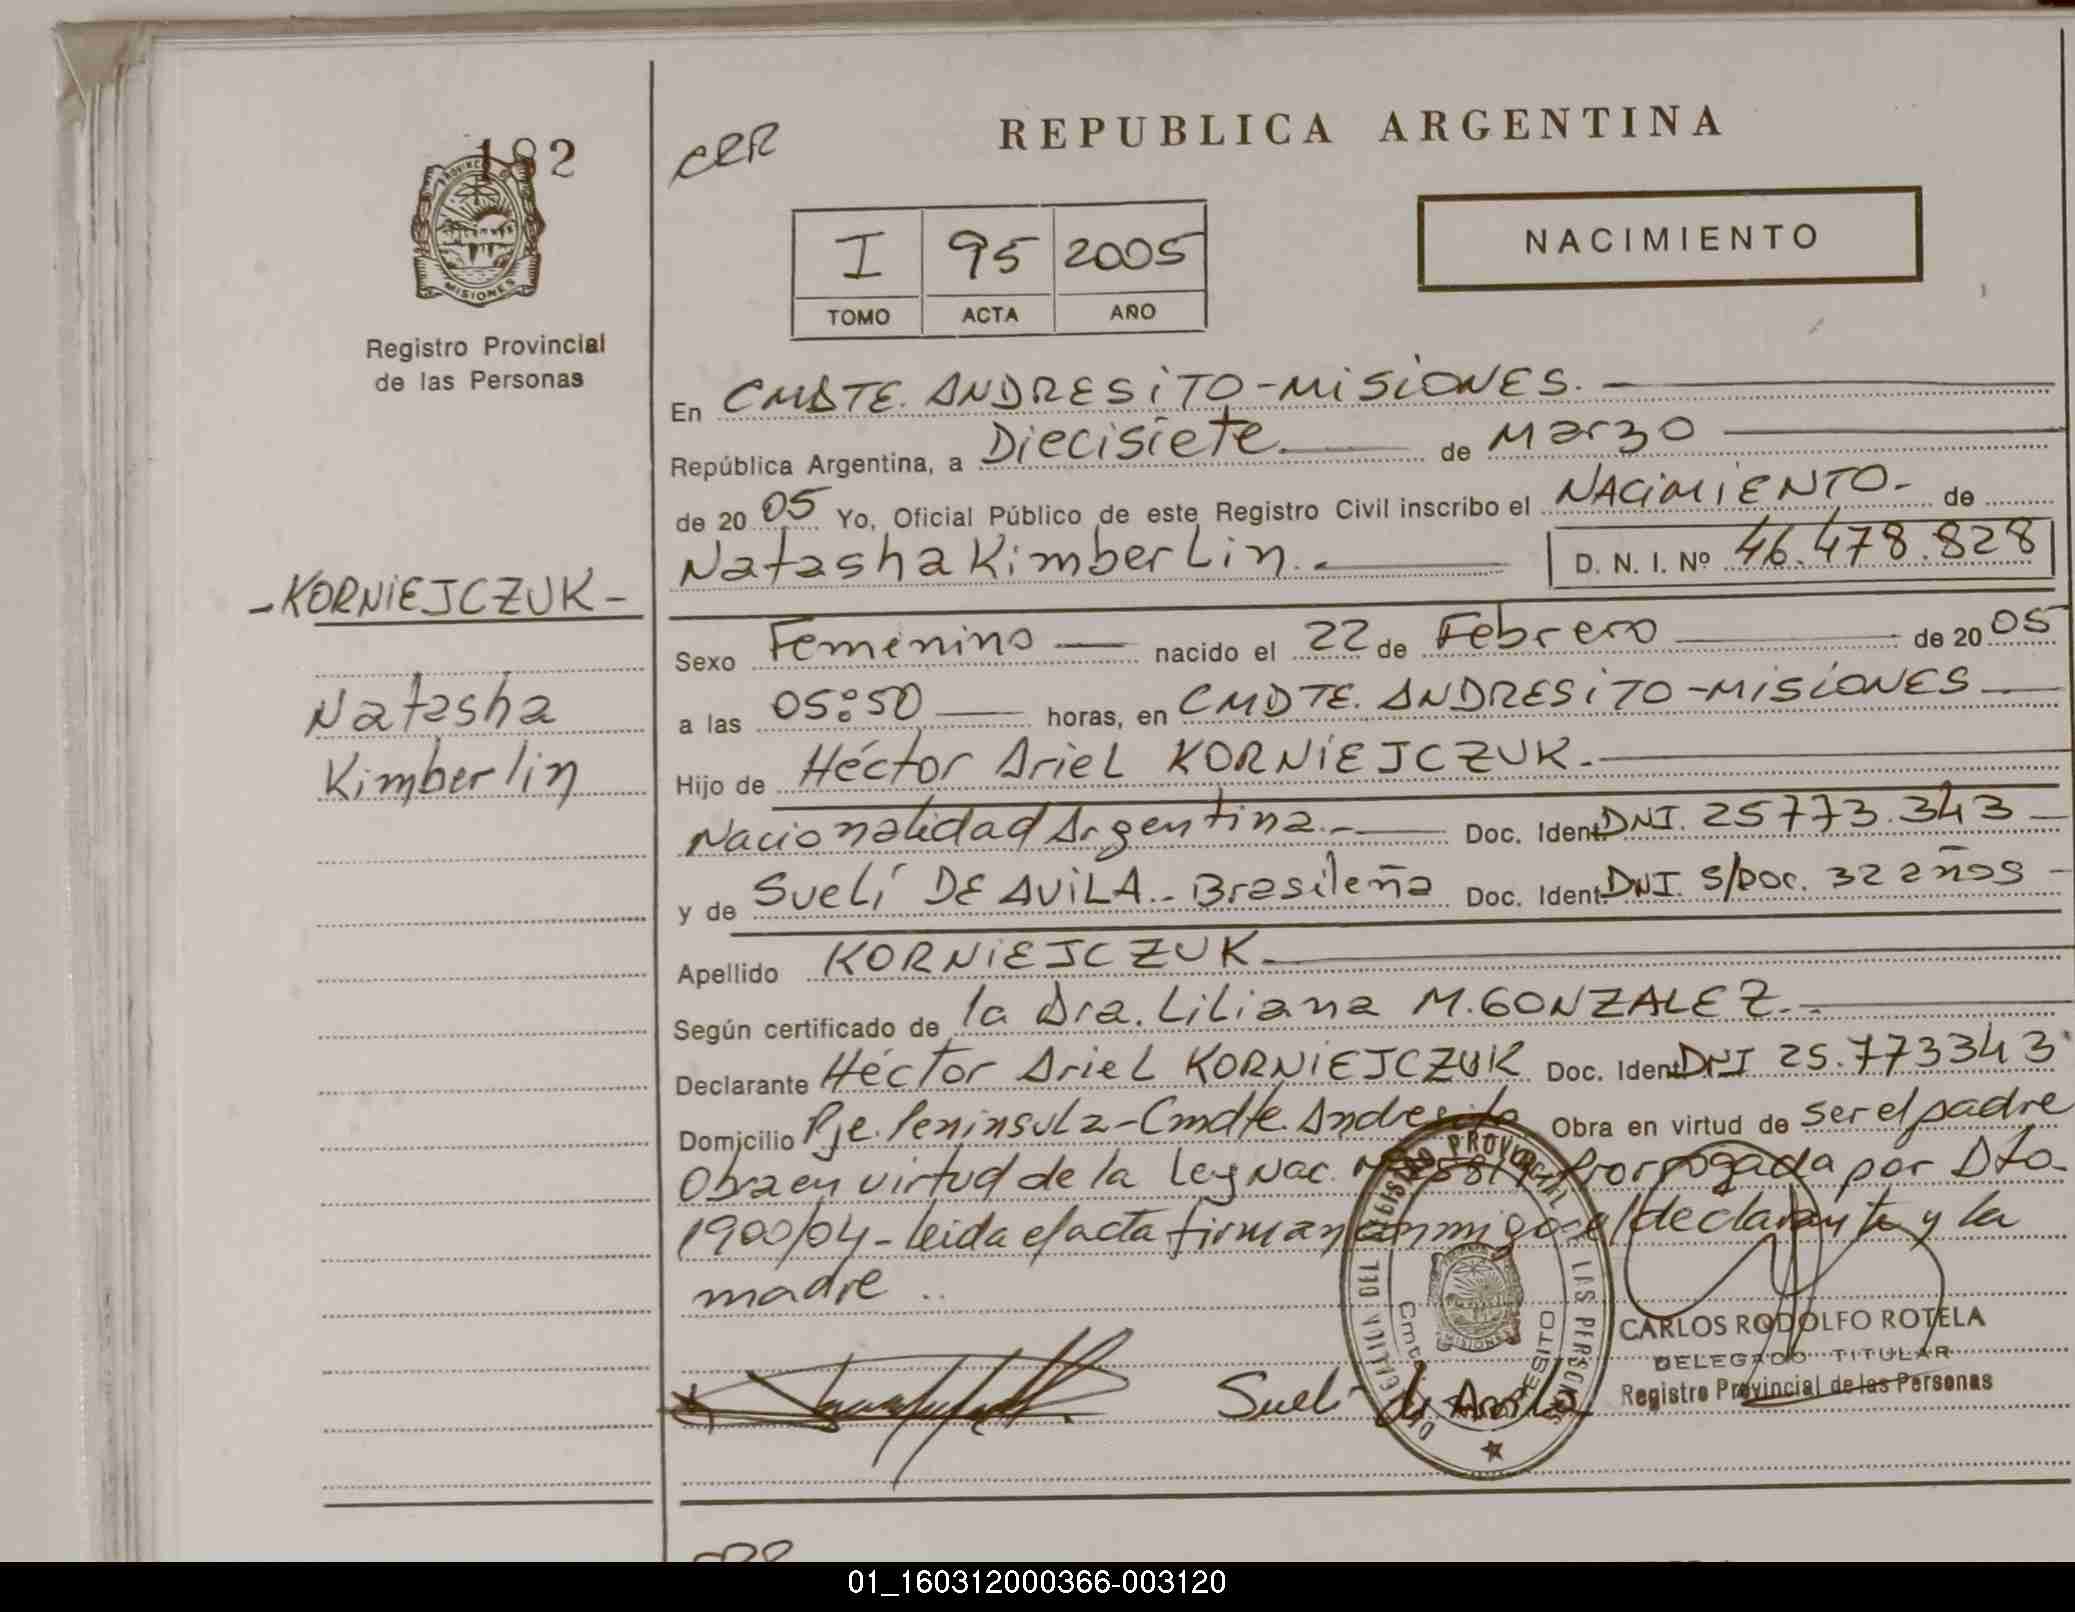 182
PROVINCIA
MISIONES
Registro Provincial
de las Personas
- KORNiEJCZUK -
Natasha
Kimberlin
CRR
REPUBLICA ARGENTINA
NACIMIENTO
I 95 2005
TOMO ACTA AÑO
En CMDTE. ANDRESiTO - MiSiONES.
República Argentina, a Diecisiete de Marzo
de 20 05 Yo, Oficial Público de este Registro Civil inscribo el NACiMiENTO - de
Natasha Kimberlin. D. N. I. Nº 46.478.828
Sexo Femenino nacido el 22 de Febrero de 20 05
a las 05:50 horas, en CMDTE. ANDRESiTO - MiSiONES
Hijo de Héctor Ariel KORNiEJCZUK.
Nacionalidad Argentina. Doc. Ident. DNI. 25773.343
y de Suelí DE AViLA. - Brasileña Doc. Ident. DNI. S/Doc. 32 años
Apellido KORNiEJCZUK
Según certificado de la Dra. Liliana M. GONZALEZ.
Declarante Héctor Ariel KORNiEJCZUK Doc. Ident. DNI 25.773343
Domicilio Pje. Peninsula - Cmdte. Andresito Obra en virtud de ser el padre
Obra en virtud de la Ley Nac. Nº 25819 Prorrogada por Dto.
1900/04 - leida el acta firman conmigo el declarante y la
madre ..
Sueli de Avila
CARLOS RODOLFO ROTELA
DELEGADO TITULAR
Registro Provincial de las Personas
01_160312000366-003120